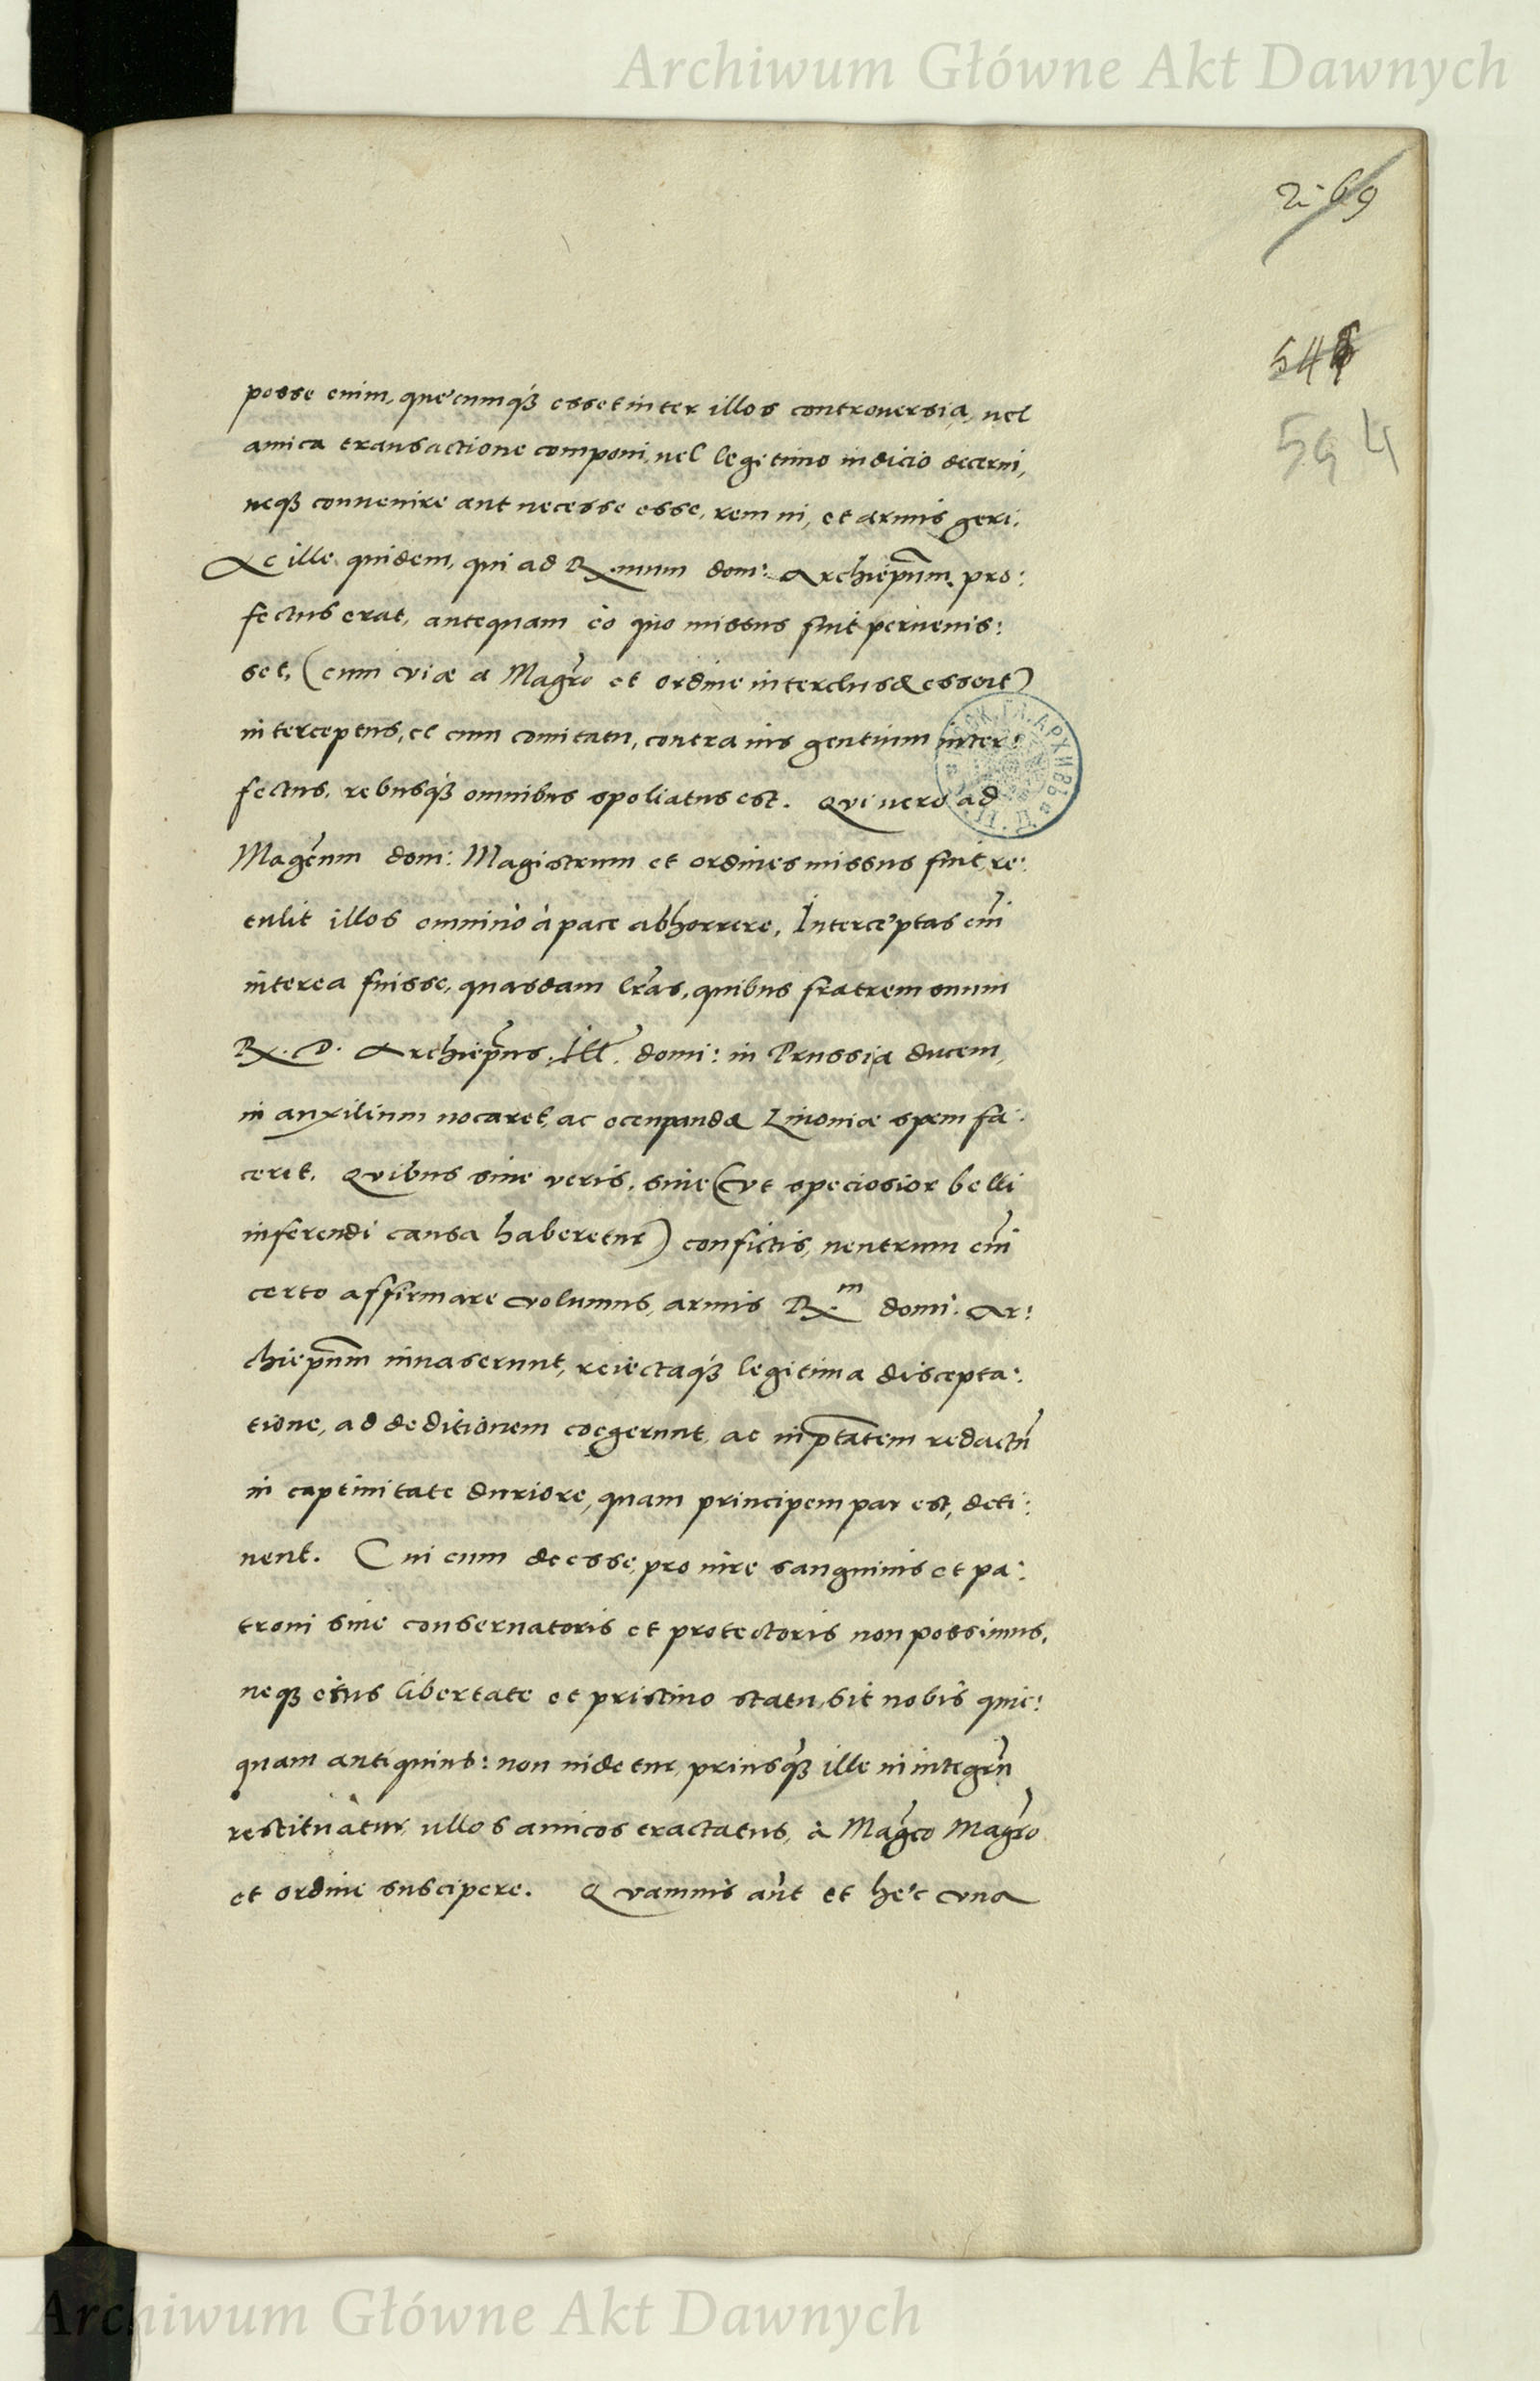 Archiwum Główne Akt Dawnych
2·69
594
posse enim, quęcumqʒ esset inter illos controuersia, uel
amica transactione componi, uel legitimo iudicio decerni,
neqʒ conuenire aut necesse esse, rem ui, et armis geri.
Ac ille quidem, qui ad Rx.mum dom: Archiepũm, pro:
fectus erat, antequam eò quo missus fuit peruenis:
set, (cum viæ a Magr̃o et ordine interclusæ essent)
interceptus, et cum comitatu, contra ius gentium inter:
fectus, rebusqʒ omnibus spoliatus est. Qui uero ad
Magc̃um dom: Magistrum et ordines missus fuit, re:
tulit illos omninò à pace abhorrere, Interceptas em̃
interea fuisse, quasdam lr̃as, quibus fratrem suum
Rx. D. Archiep̃us, Ill̃. domi: in Prussia ducem,
in auxilium uocaret, ac occupandæ Liuoniæ spem fa:
ceret. Quibus siue veris, siue (vt speciosior belli
inferendi causa haberetur) confictis, neutrum em̃
certo affirmare volumus, armis Rx.m domi. Ar:
chiepũm inuaserunt, reiectaqʒ legitima discepta:
tione, ad deditionem coegerunt, ac in ptãtem redactũ
in captiuitate duriore, quam principem par est, deti:
nent. Cui cum deesse, pro iure sanguinis et pa:
troni siue conseruatoris et protectoris non possimus,
neqʒ eius libertate et pristino statu, sit nobis quic:
quam antiquius: non uidetur, priusqʒ̃ ille in integrũ
restituatur, ullos amicos tractatus, à Magc̃o Magr̃o
et ordine suscipere. Quamuis aũt et hęc vna
Archiwum Główne Akt Dawnych